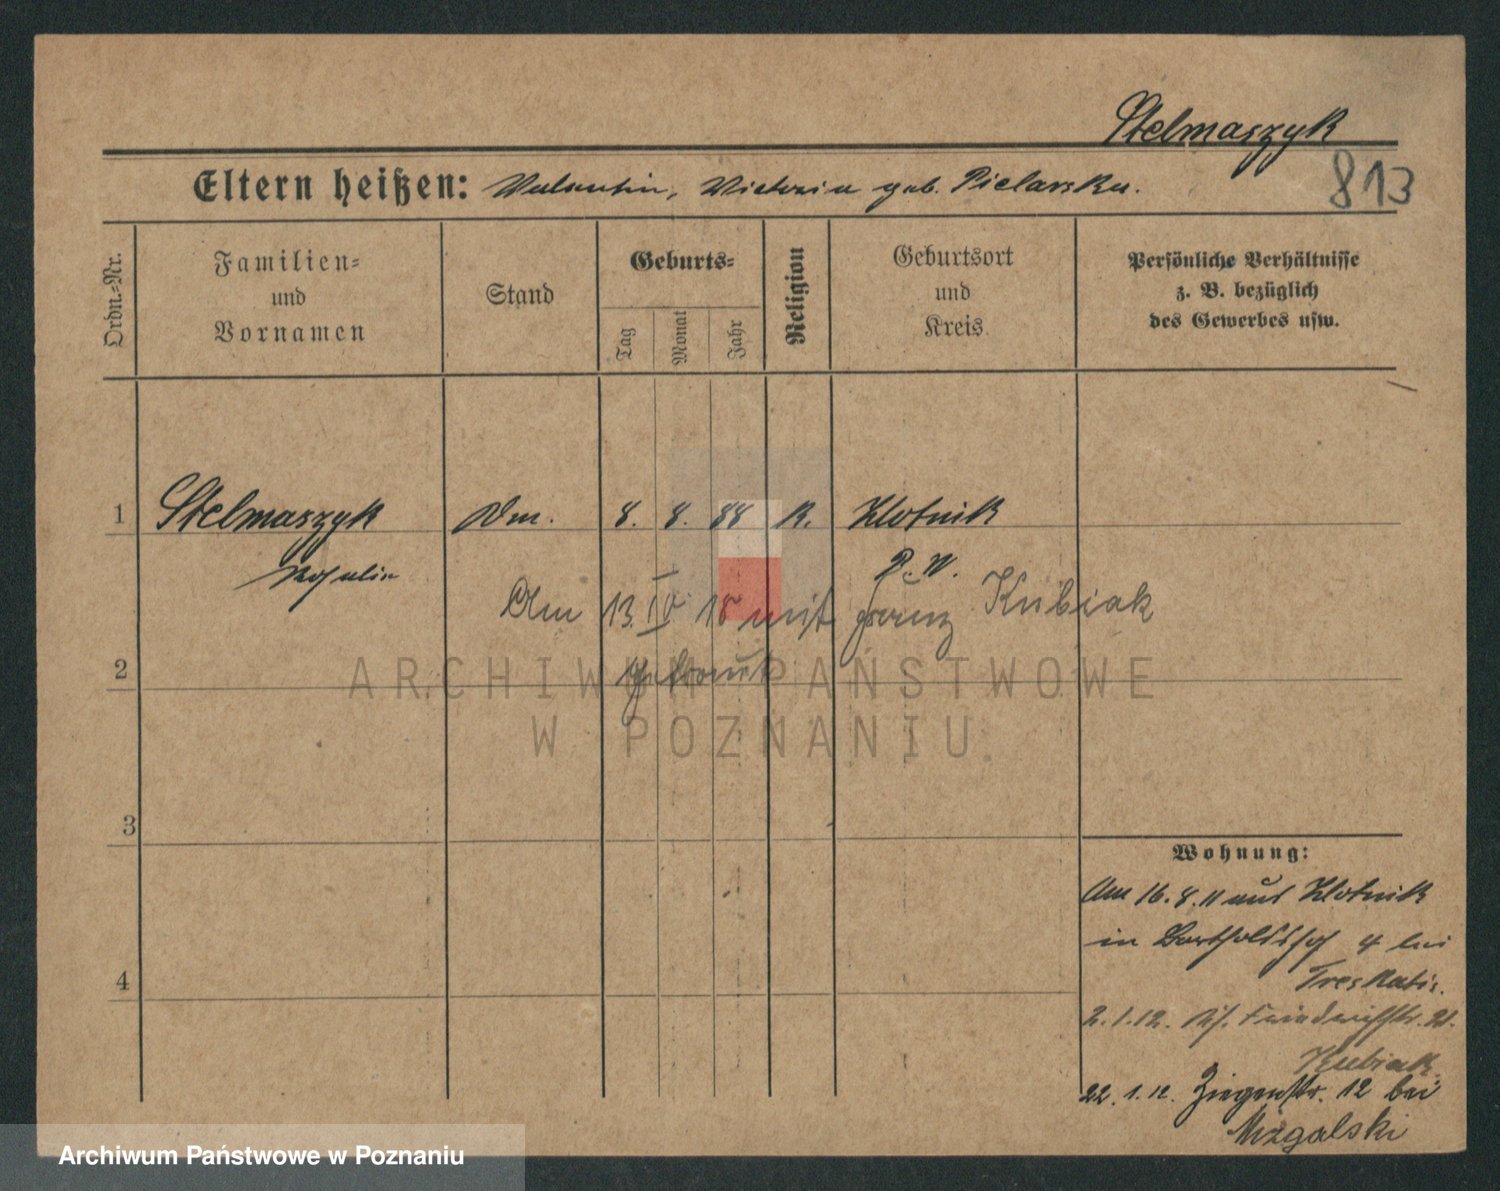 Stelmaszyk
813
Eltern heißen: Valentin, Victoria geb. Pielarska.
Ordn.-Nr.
Familien-
und
Vornamen
Stand
Geburts-
Tag
Monat
Jahr
Religion
Geburtsort
und
Kreis
Persönliche Verhältnisse
z. B. bezüglich
des Gewerbes usw.
1
Stelmaszyk
Dm.
8. 8. 88
K.
Klotnik
P. W.
Am 13. IV 18 mit Franz Kubiak
getraut
2
3
4
Wohnung:
Am 16. 8. 11 aus Klotnik
in Bartholdshof 4 bei
2. 1. 12. Friedrichstr. 21.
Kubiak
22. 1. 12. Ziegenstr. 12 bei
Mizgalski
ARCHIWUM PAŃSTWOWE
W POZNANIU
Archiwum Państwowe w Poznaniu